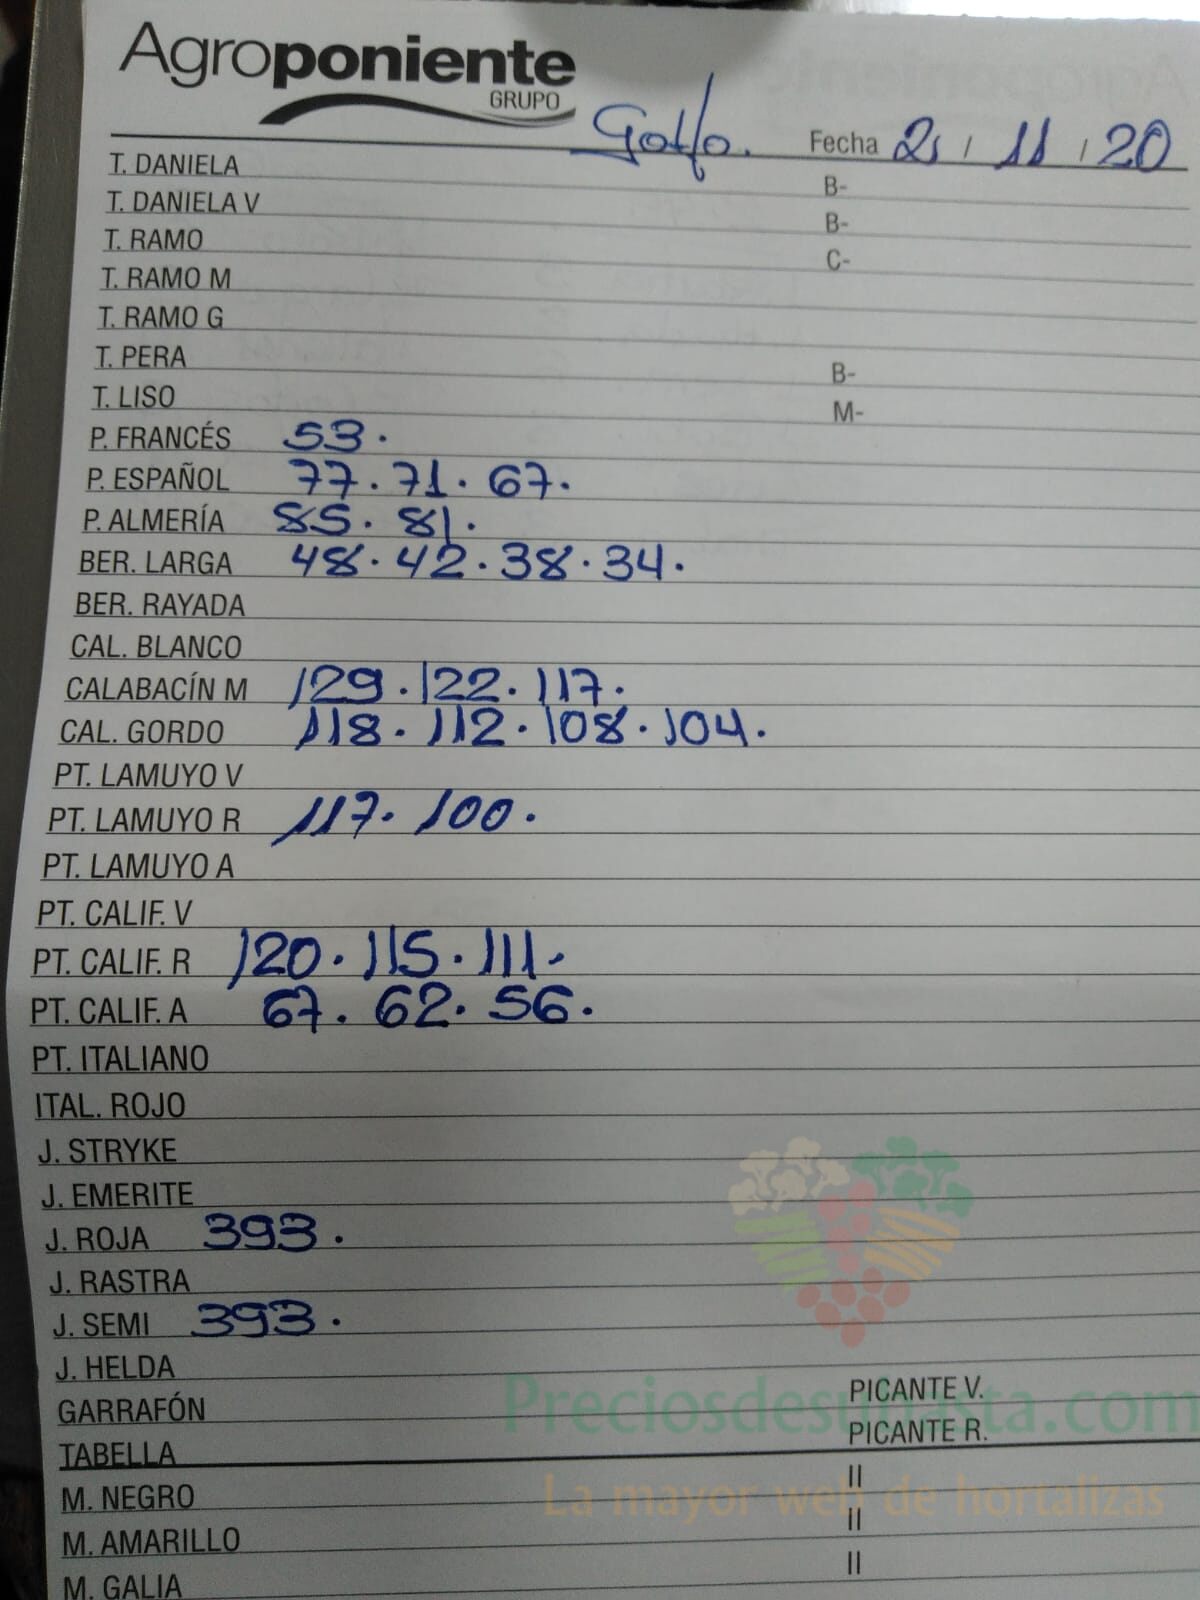 Agroponiente
GRUPO
Golfo. Fecha 21 / 11 / 20
T. DANIELA B-
T. DANIELA V B-
T. RAMO C-
T. RAMO M
T. RAMO G
T. PERA B-
T. LISO M-
P. FRANCÉS 53.
P. ESPAÑOL 77. 71. 67.
P. ALMERÍA 85. 81.
BER. LARGA 48. 42. 38. 34.
BER. RAYADA
CAL. BLANCO
CALABACÍN M 129. 122. 117.
CAL. GORDO 118. 112. 108. 104.
PT. LAMUYO V
PT. LAMUYO R 117. 100.
PT. LAMUYO A
PT. CALIF. V
PT. CALIF. R 120. 115. 111.
PT. CALIF. A 67. 62. 56.
PT. ITALIANO
ITAL. ROJO
J. STRYKE
J. EMERITE
J. ROJA 393.
J. RASTRA
J. SEMI 393.
J. HELDA
PICANTE V.
GARRAFÓN
Preciosdesubasta.com
PICANTE R.
TABELLA
M. NEGRO II
La mayor web de hortalizas
M. AMARILLO II
M. GALIA II